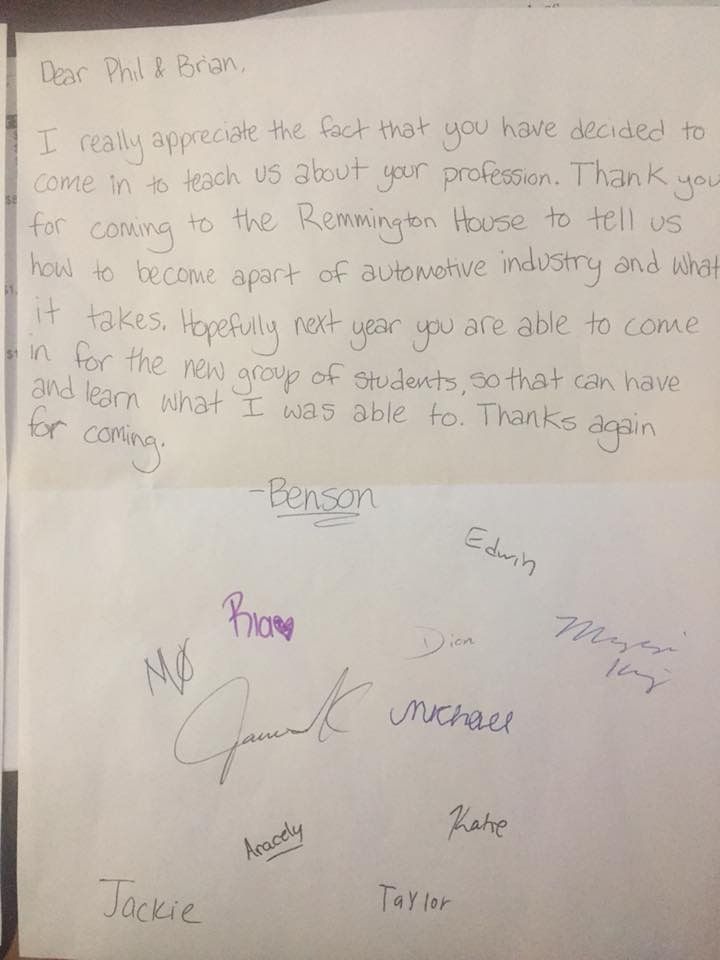 Dear Phil & Brian,
I really appreciate the fact that you have decided to
come in to teach us about your profession. Thank you
for coming to the Remmington House to tell us
how to become apart of automotive industry and what
it takes. Hopefully next year you are able to come
in for the new group of students, so that can have
and learn what I was able to. Thanks again
for coming.
-Benson
Edwin
Ria
Dion
MØ
Michael
Aracely
Katie
Jackie
Taylor